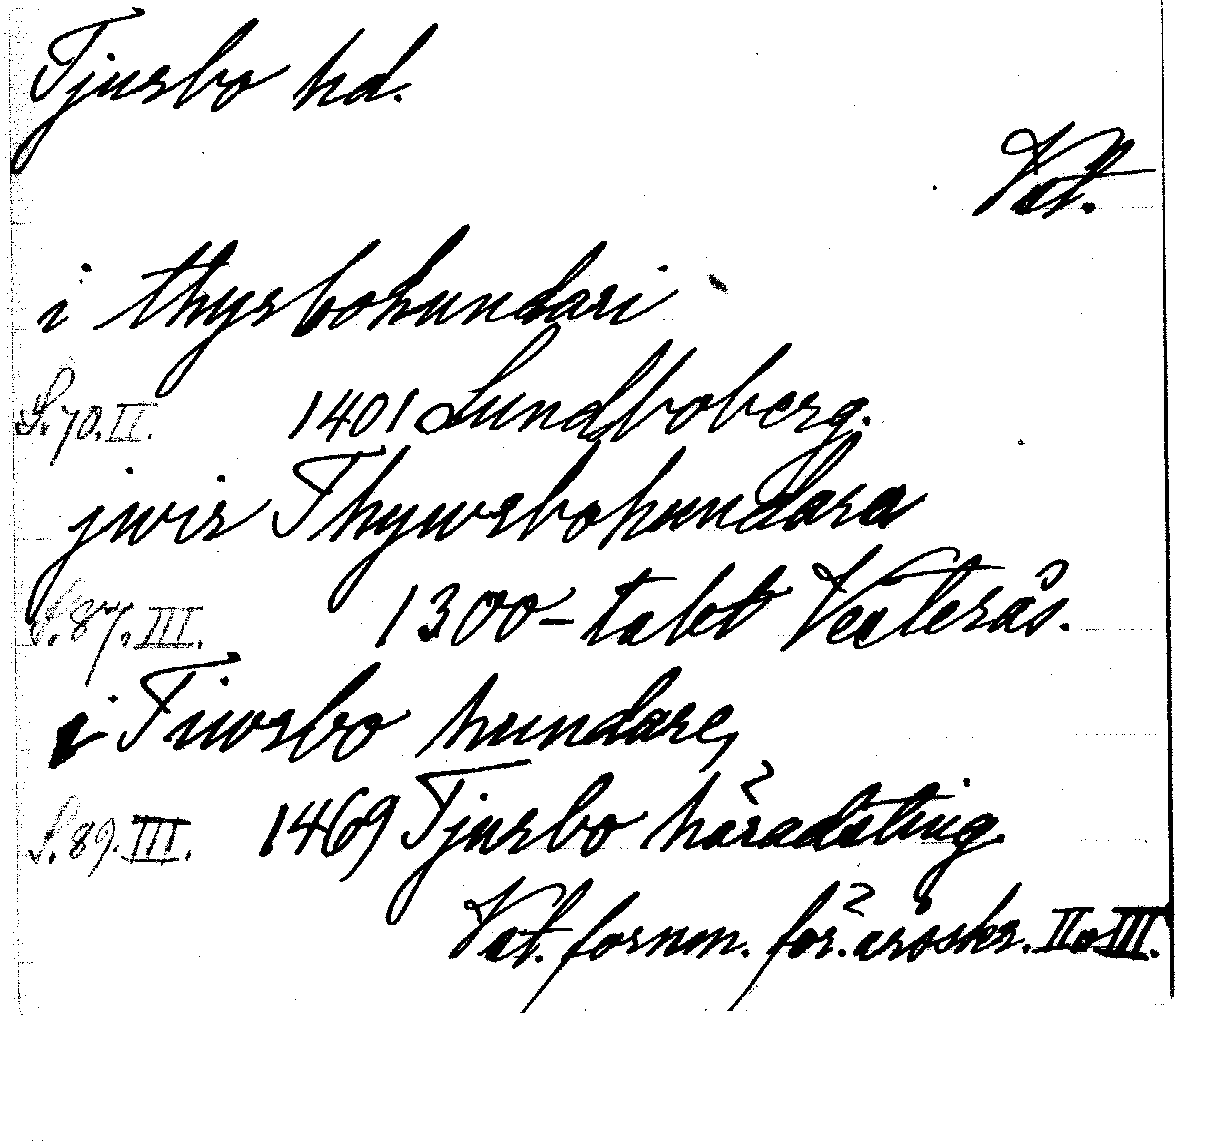 Tjurbo hd.
Vst.
i thyrbohundari
S. 70. II. 1401 Lundboberg.
jwir Thywrbohundara
S. 87. III. 1300-talet Västerås.
i Tiwrbo hundare,
S. 89. III. 1469 Tjurbo häradsting.
Vst. fornm. för. årsskr. II o III.